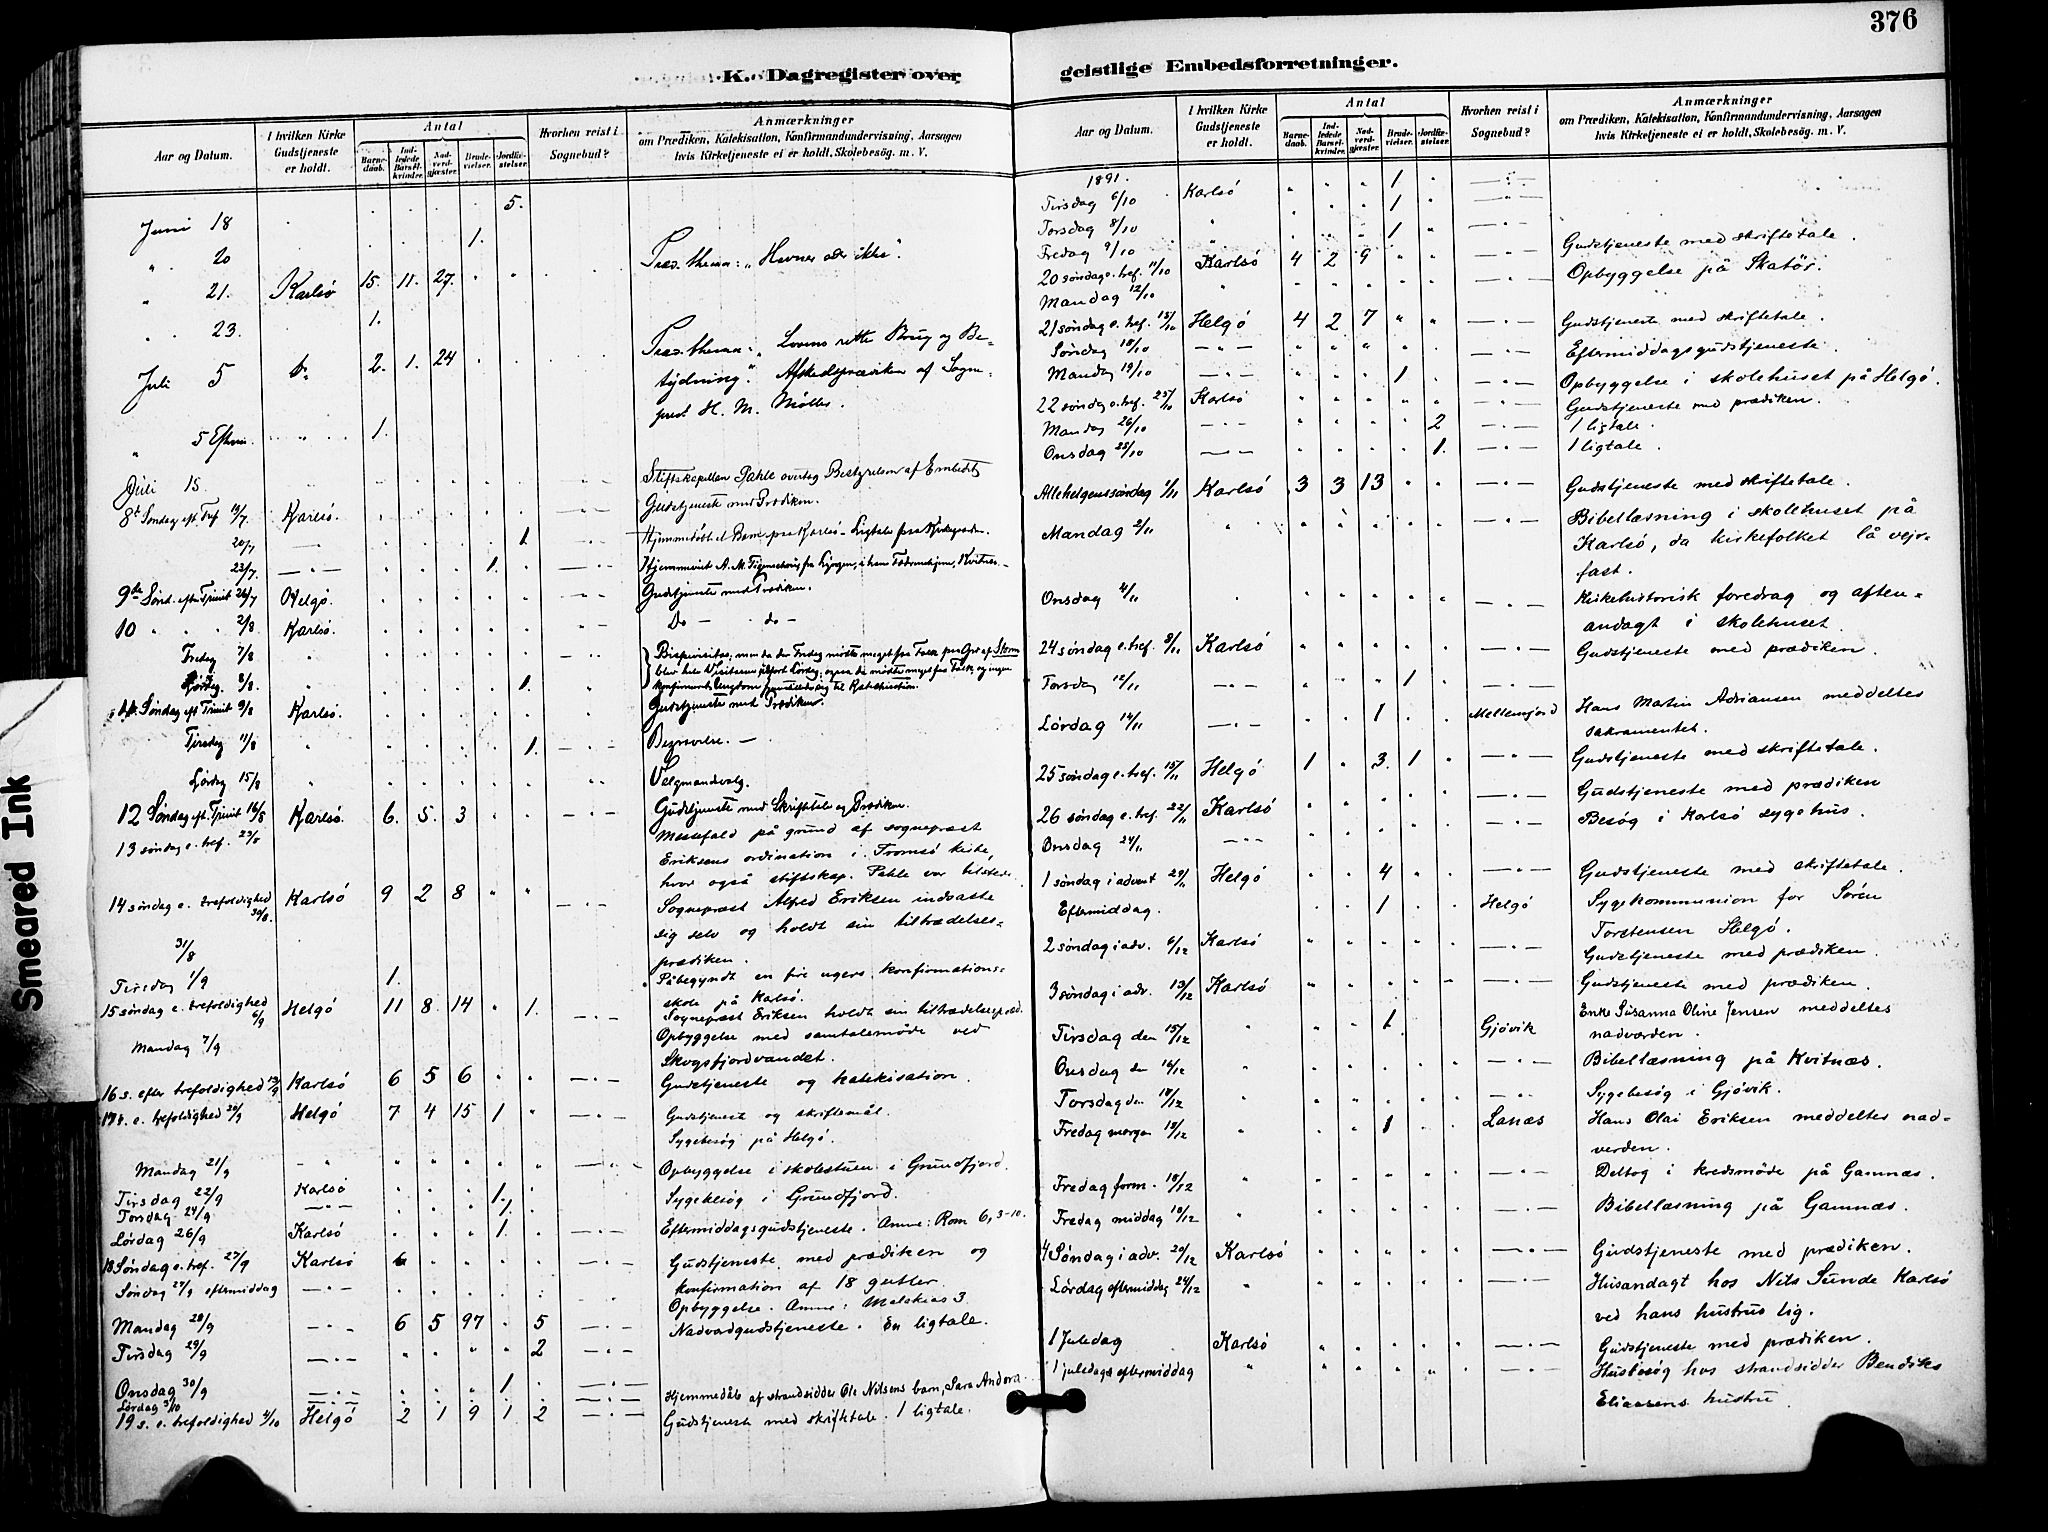 376
K. Dagregister over
geistlige Embedsforretninger.
Smeared Ink
Aar og Datum.
I hvilken Kirke Gudstjeneste er holdt.
Antal
Barne-daab.
Ind-ledede Barsel-kvinder.
Nad-verd-gjæster.
Brude-vielser.
Jordfæ-stelser.
Hvorhen reist i Sognebud?
Anmærkninger
om Prædiken, Katekisation, Konfirmandundervisning, Aarsagen
hvis Kirketjeneste ei er holdt, Skolebesög. m. V.
Juni 18 5.
" 20 1.
" 21. Karlsö 15. 11. 27. Præs. thema: "Hevnes eder ikke".
" 23. 1.
Juli 5 do 2. 1. 24 Præs. thema: "Lovens rette Brug og Be-
tydning." Afskedspræeken af Sogne-
prest H. M. Möller.
" 5 Efterm. 1.
Juli 15. Stiftskapellan Pahle overtog Bestyrelsen af Embedet
8de Søndag eft. Tref. 19/7. Karlsö. Gudstjeneste med Prædiken.
20/7 1. Hjemmedöbt et Barn paa Karlsö - Ligtale paa Kirkegaarden.
23/7. 1.
9de Sönd. efter Trinit 26/7 Helgö. Gudstjeneste med Prædiken.
10 " " 2/8 Karlsö. Do - do -
Fredag 7/8 Bispevisitas; men da der Fredag mödte meget faa Folk paa Grund af Storm
Lördag. 8/8. 1.
Söndag eft Trinit 9/8 Karlsö. Gudstjeneste med Prædiken.
Tirsdag 11/8 1. Begravelse. -
Lördag 15/8 Valgmandsvalg.
12 Söndag eft. Trinit 16/8 Karlsö. 6. 5. 3 Gudstjeneste med Skriftetale og Prædiken.
13 söndag e. tref. 23/8 Messefald på grund af sogneprest
Eriksens ordination i Tromsö kirke,
hvor også stiftskap. Pahle var tilstede.
14 söndag e. trefoldighed 30/8. Karlsö 9 2 8 Sogneprest Alfred Eriksen indsatte
sig selv og holdt sin tiltrædelses-
prædiken.
31/8 Påbegyndt en fire ugers konfirmations-
skole på Karlsö.
Tirsdag 1/9 1.
15 söndag e. trefoldighed 6/9 Helgö 11 8 14 1. Sogneprest Eriksen holdt sin tiltrædelsespræd.
Mandag 7/9 Opbyggelse med samtalemöde ved
Skogsfjordvandet.
16 s. efter trefoldighed 13/9 Karlsö 6 5 6 Gudstjeneste og katekisation.
17 s. e. trefoldighed 20/9 Helgö 7 4 15 1 Gudstjenest og skriftemål.
Sygebesög på Helgö.
Mandag 21/9 Opbyggelse i skolestuen i Grundfjord.
Tirsdag 22/9 Karlsö 1. Sygebesög i Grundfjord.
Torsdag 24/9 1.
Lördag 26/9 Karlsö 1. Eftermiddagsgudstjeneste. Amne: Rom 6, 3-10.
18 Söndag e. tref. 27/9 Karlsö Gudstjeneste med prædiken og
konfirmation af 18 gutter.
Söndag 27/9 eftermiddag Opbyggelse. Amne: Malakias 3.
Mandag 28/9 6 5 97 5 Nadverdgudstjeneste. En ligtale.
Tirsdag 29/9 2
Onsdag 30/9 1
Lördag 3/10 Hjemmedåb af strandsidder Ole Nilsens barn, Sara Andora.
19 s. e. trefoldighed 4/10 Helgö 2 1 9 1 2 Gudstjeneste med skriftetale. 1 ligtale.
Aar og Datum.
I hvilken Kirke Gudstjeneste er holdt.
Antal
Barne-daab.
Ind-ledede Barsel-kvinder.
Nad-verd-gjæster.
Brude-vielser.
Jordfæ-stelser.
Hvorhen reist i Sognebud?
Anmærkninger
om Prædiken, Katekisation, Konfirmandundervisning, Aarsagen
hvis Kirketjeneste ei er holdt, Skolebesög. m. V.
1891.
Tirsdag 6/10 Karlsö 1
Torsdag 8/10 1
Fredag 9/10 " 1
20 söndag e. tref. 11/10 Karlsö 4 2 9 Gudstjeneste med skriftetale.
Mandag 12/10 " Opbyggelse på Skatör.
21 söndag e. tref. 18/10 Helgö 4 2 7 Gudstjeneste med skriftetale.
Söndag 18/10 Eftermiddagsgudstjeneste.
Mandag 19/10 1 Opbyggelse i skolehuset på Helgö.
22 söndag e. tref. 25/10 Karlsö Gudstjeneste med prædiken.
Mandag 26/10 2 1 ligtale.
Onsdag 28/10 1. 1 ligtale.
Allehelgenssöndag 1/11 Karlsö 3 3 13 Gudstjeneste med skriftetale.
Mandag 2/11 Bibellæsning i skolehuset på
Karlsö, da kirkefolket lå vejr-
fast.
Onsdag 4/11 Kirkehistorisk foredrag og aften-
andagt i skolehuset.
24 söndag e. tref. 8/11 Karlsö Gudstjeneste med prædiken.
Torsdag 12/11 1
Lördag 14/11 1 Mellemjord Hans Martin Adriansen meddeltes
sakramentet.
25 söndag e. tref. 15/11 Helgö 1 3. 1 Gudstjeneste med skriftetale.
26 söndag e. tref. 22/11 Karlsö Gudstjeneste med prædiken
Onsdag 24/11 Besög i Karlsö sygehus.
1 söndag i advent 29/11 Helgö 4 Gudstjeneste med skriftetale.
Eftermiddag. 1 Helgö Sygekommunion for Sören
Torstensen Helgö.
2 söndag i adv. 6/12 Karlsö Gudstjeneste med prædiken.
3 söndag i adv. 13/12 Karlsö Gudstjeneste med prædiken.
Tirsdag den 15/12 1 Gjövik Enke Susanna Oline Jensen meddeltes
nadverden.
Onsdag den 16/12 Bibellæsning på Kvitnæs.
Torsdag den 17/12 Sygebesög i Gjövik.
Fredag morgen 18/12 1 Lanæs Hans Olai Eriksen meddeltes nad-
verden.
Fredag form. 18/12 Deltog i kredsmöde på Gamnæs.
Fredag middag 18/12 Bibellæsning på Gamnæs.
4 Söndag i adv. 20/12 Karlsö Gudstjeneste med prædiken.
Lördag eftermiddag 24/12 Husandagt hos Nils Sunde Karlsö
ved hans hustrus lig.
1 Juledag Karlsö Gudstjeneste med prædiken.
1 juledags eftermiddag Husbesög hos strandsidder Bendiks
Eliassens hustru.